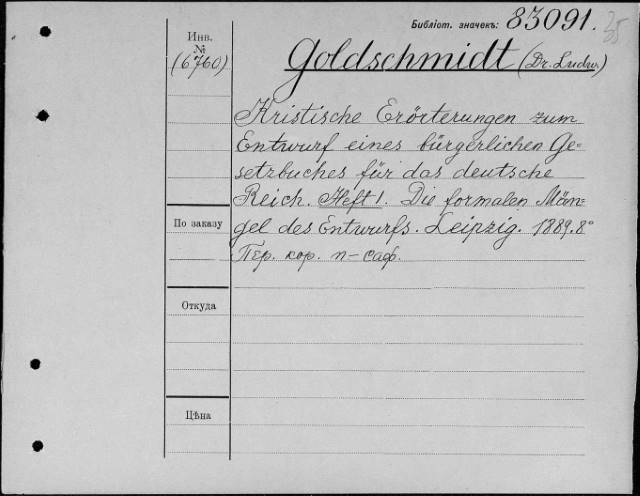 Библіот. значекъ: 83091.
Инв.
№
(6760)
Goldschmidt (Dr. Ludw.)
Kristische Erörterungen zum
Entwurf eines bürgerlichen Ge=
setzbuches für das deutsche
Reich. Heft 1. Die formalen Män=
gel des Entwurfs. Leipzig. 1889. 8°
Пер. кор. п-саф.
По заказу
Откуда
Цѣна